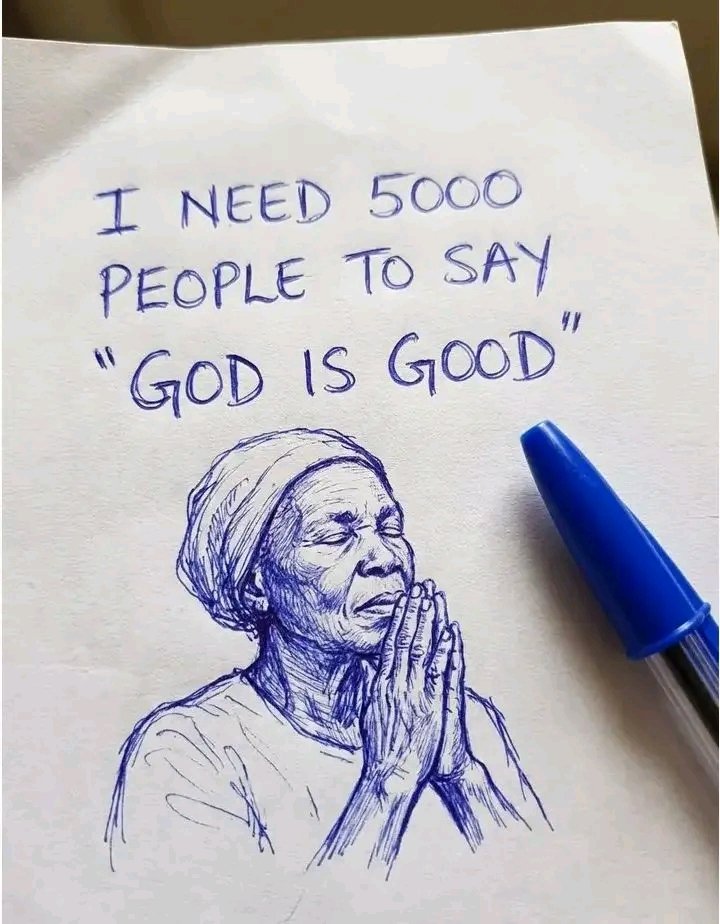 I NEED 5000
PEOPLE TO SAY
"GOD IS GOOD"